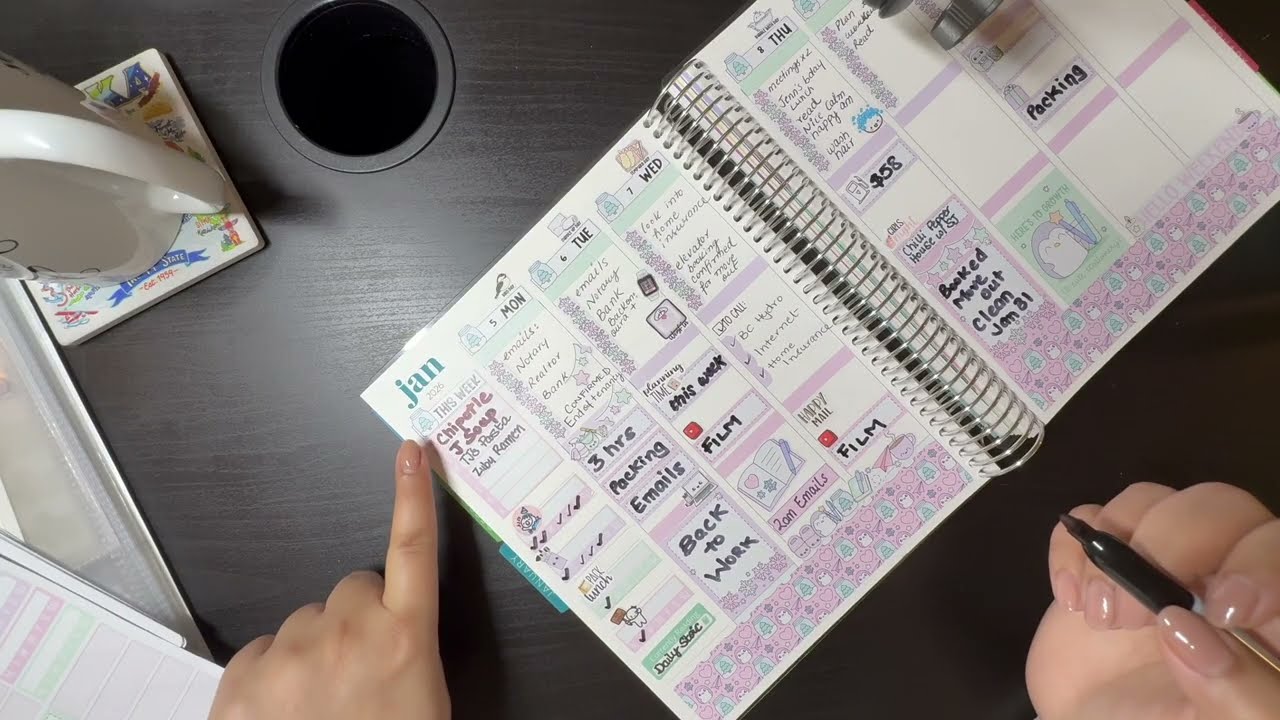 jan
2026
THIS WEEK
Chipotle
J Soup
TJ's Pasta
Zuby Ramen
PACK
lunch
Daily Stats
5 MON
emails:
Notary
Realtor
Bank
CONFIRMED
3 hrs
Packing
Emails
Back
to
Work
6 TUE
emails
Notary
Bank
planning
TIME
this week
FILM
2am Emails
7 WED
look into
home
insurance
elevator
booking
confirmed
for move
out
TO CALL:
BC Hydro
Internet
Home
insurance
HAPPY
MAIL
FILM
8 THU
meetings x2
Jenn bday
Lunch
read
Nic calm
happy am
wash
hair
$58
GIRLS
Chilli Pepper
House w/ SJ
Booked
Move
out
Clean
Jan 31
Plan
read
Packing
HERE'S TO GROWTH
HELLO WEEKEND
JANUARY
STATE
Est. 1939